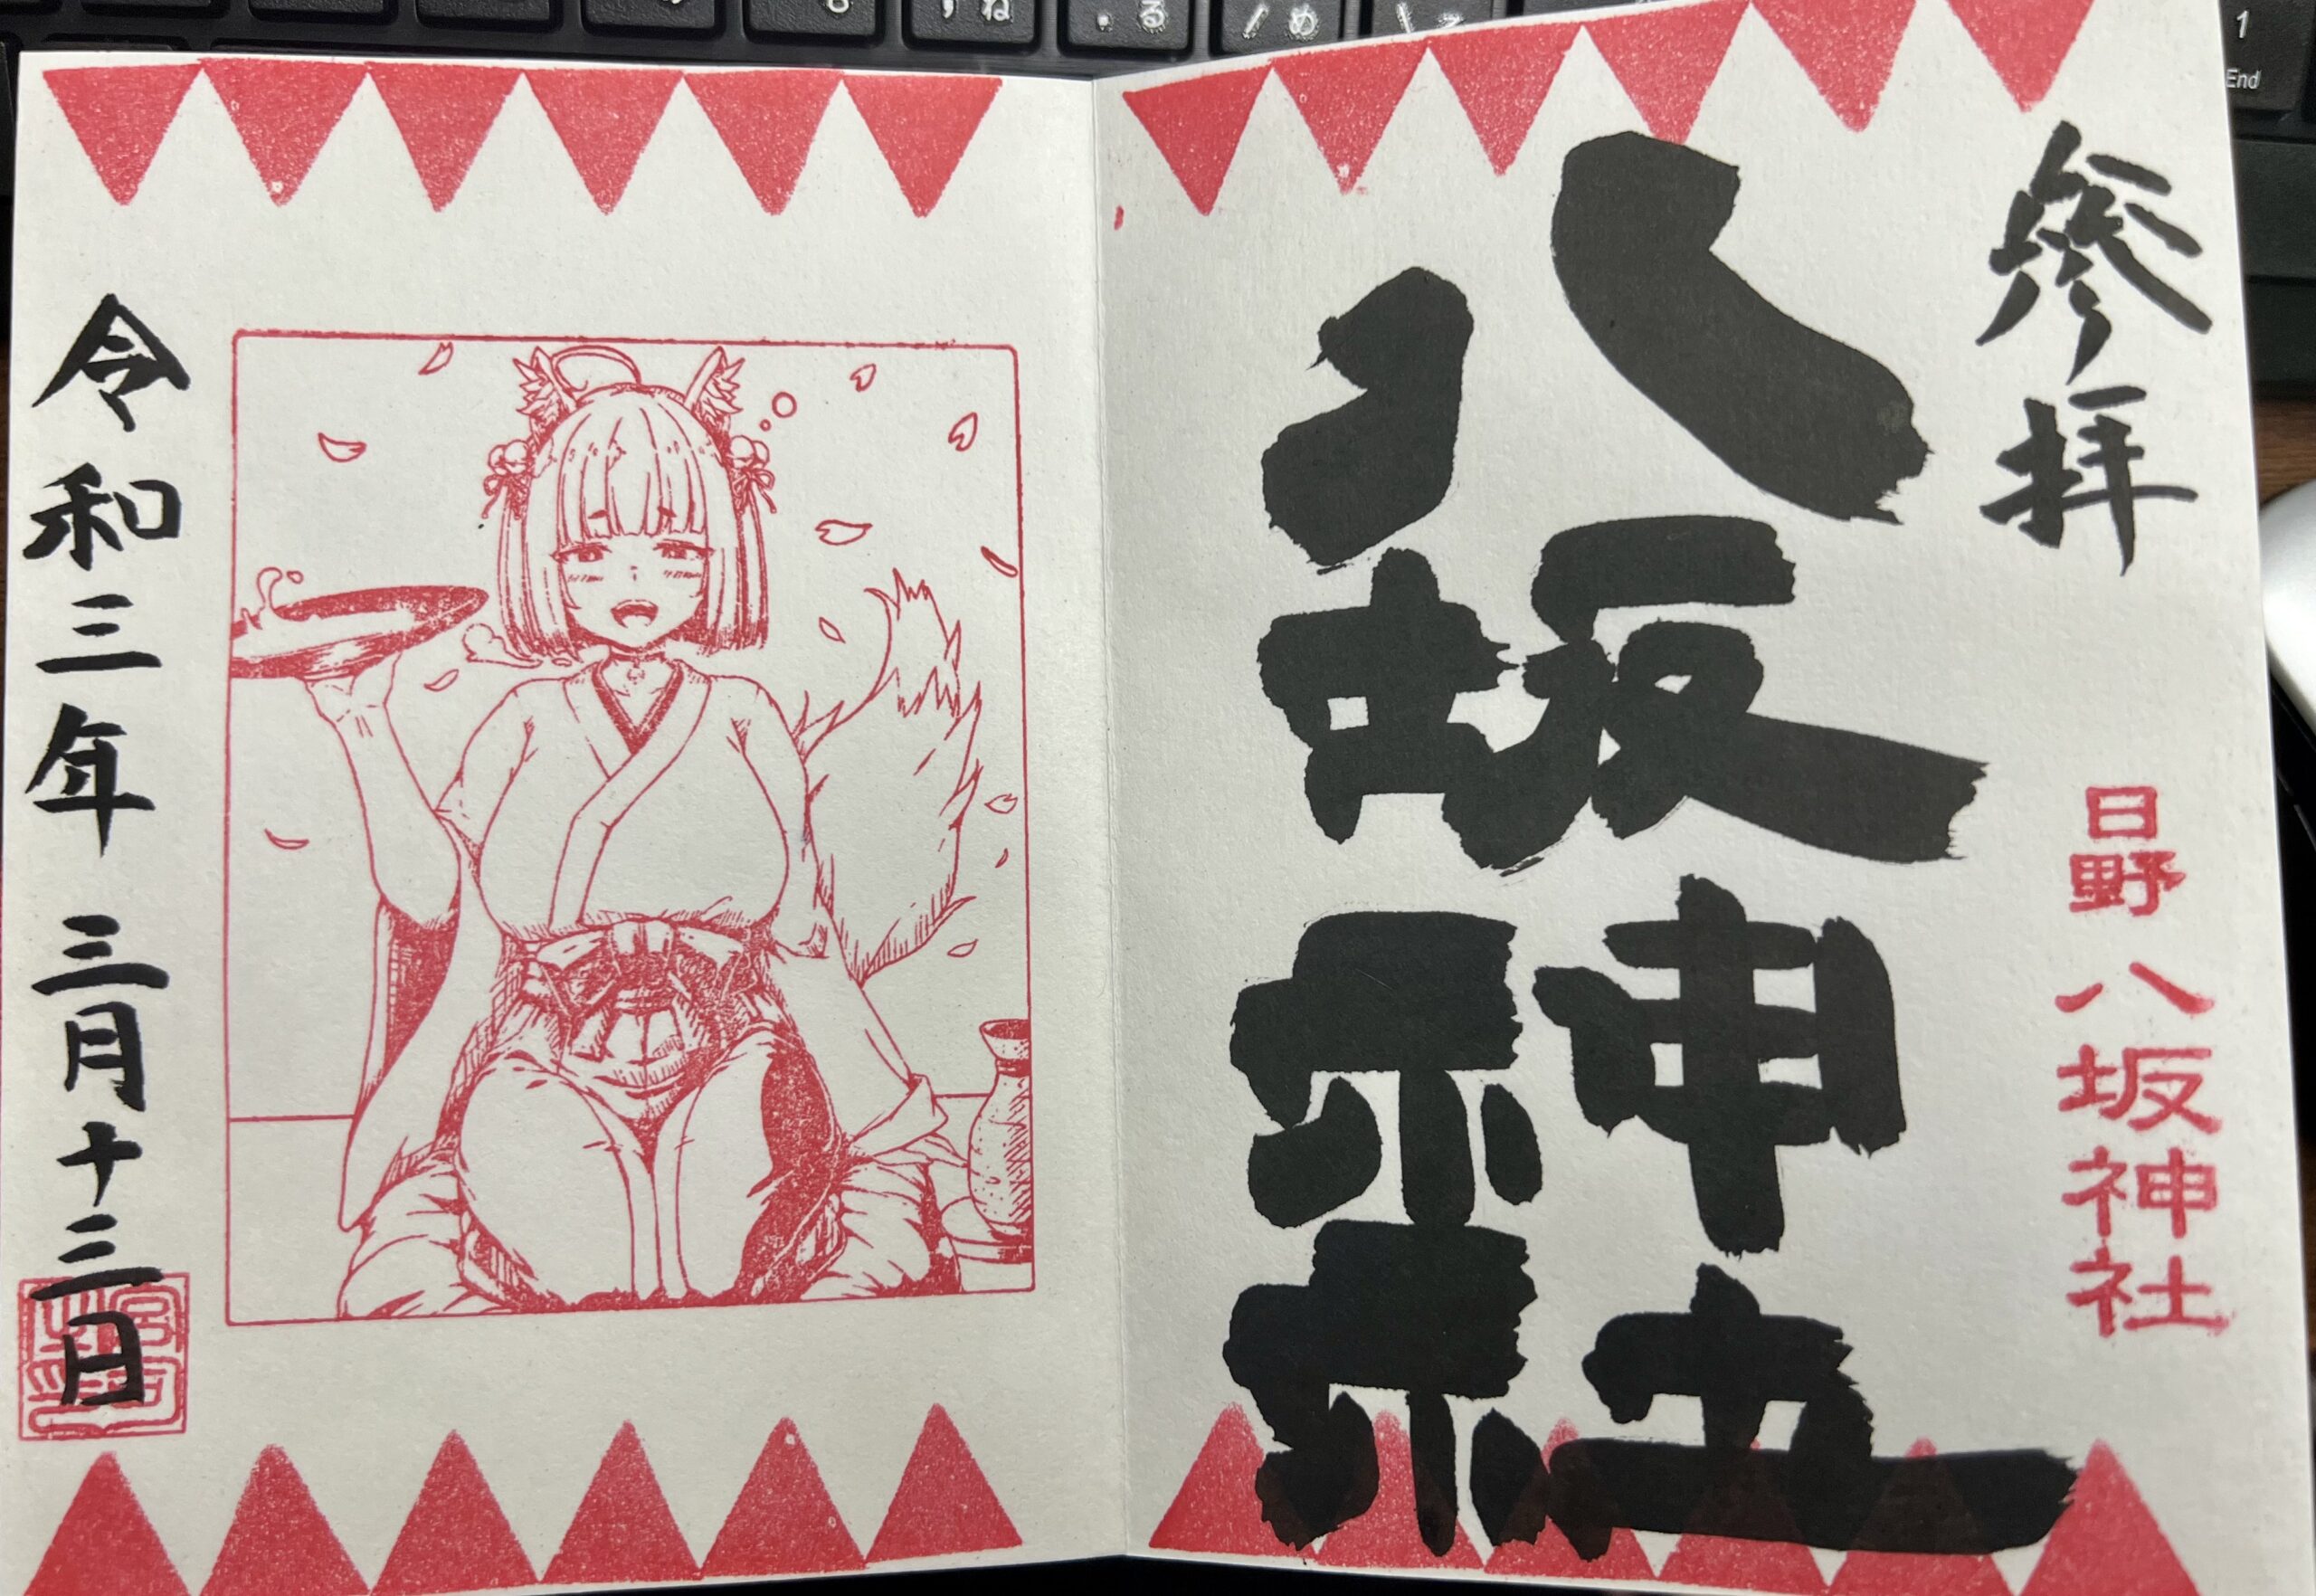 参拝
日野八坂神社
八坂神社
令和三年三月十三日
る
め
ね
1
End